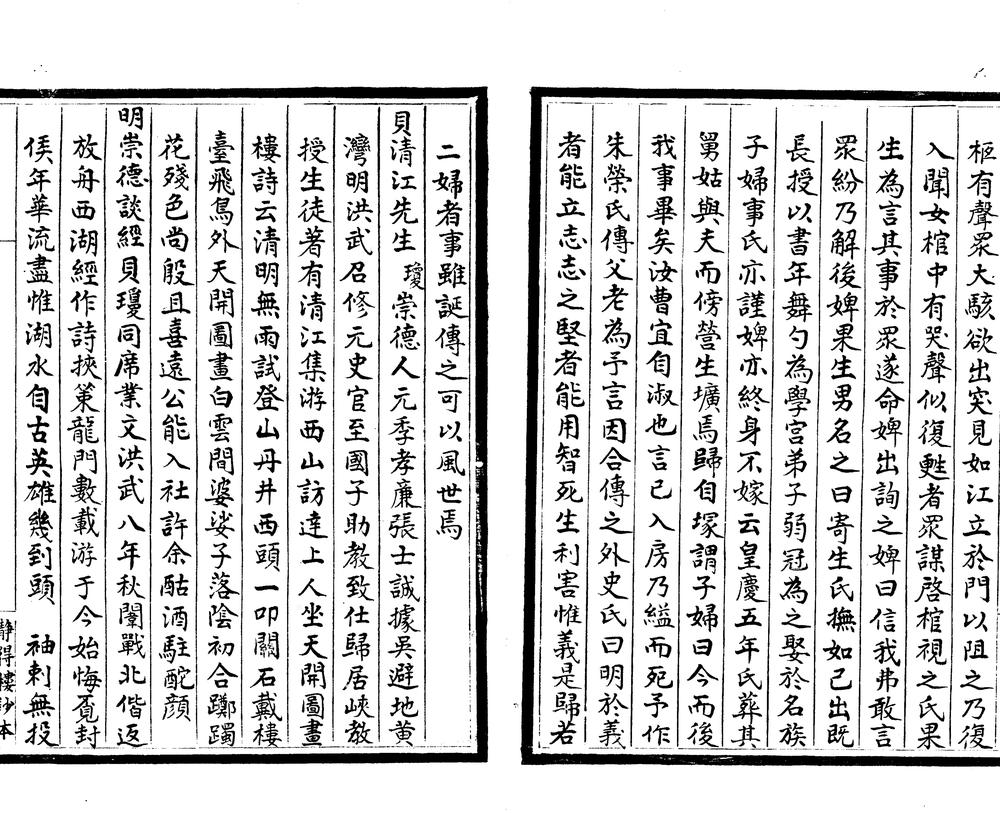 柩有聲眾大駭欲出突見如江立於門以阻之乃復
入聞女棺中有哭聲似復甦者眾謀啓棺視之氏果
生為言其事於眾遂命婢出詢之婢曰信我弗敢言
眾紛乃解後婢果生男名之曰寄生氏撫如己出既
長授以書年舞勺為學宮弟子弱冠為之娶於名族
子婦事氏亦謹婢亦終身不嫁云皇慶五年氏葬其
舅姑與夫而傍營生壙焉歸自塚謂子婦曰今而後
我事畢矣汝曹宜自淑也言已入房乃縊而死予作
朱榮氏傳父老為予言因合傳之外史氏曰明於義
者能立志志之堅者能用智死生利害惟義是歸若
二婦者事雖誕傳之可以風世焉
貝清江先生瓊崇德人元季孝廉張士誠據吳避地黃
灣明洪武召修元史官至國子助教致仕歸居峽教
授生徒著有清江集游西山訪達上人坐天開圖畫
樓詩云清明無雨試登山丹井西頭一叩關石戴樓
臺飛鳥外天開圖畫白雲間婆娑子落陰初合躑躅
花殘色尚殷且喜遠公能入社許余酤酒駐酡顔
明崇德談經貝瓊同席業文洪武八年秋闈戰北偕返
放舟西湖經作詩挾策龍門數載游于今始悔覔封
侯年華流盡惟湖水自古英雄幾到頭 袖刺無投
靜得樓鈔本